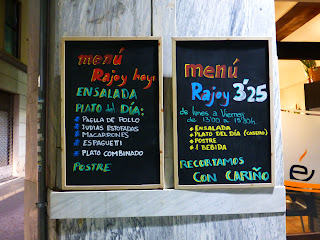 menú
Rajoy hoy:
ENSALADA
PLATO del DÍA:
* PAELLA DE POLLO
* JUDIAS ESTOFADAS
* MACARRONES
* ESPAGUETTI
* PLATO COMBINADO
POSTRE
menú
Rajoy 3'25
de lunes a Viernes
de 13'00 a 15'30h
* ENSALADA
* PLATO DEL DÍA (CASERO)
* POSTRE
* 1 BEBIDA
RECORTAMOS
CON CARIÑO
é